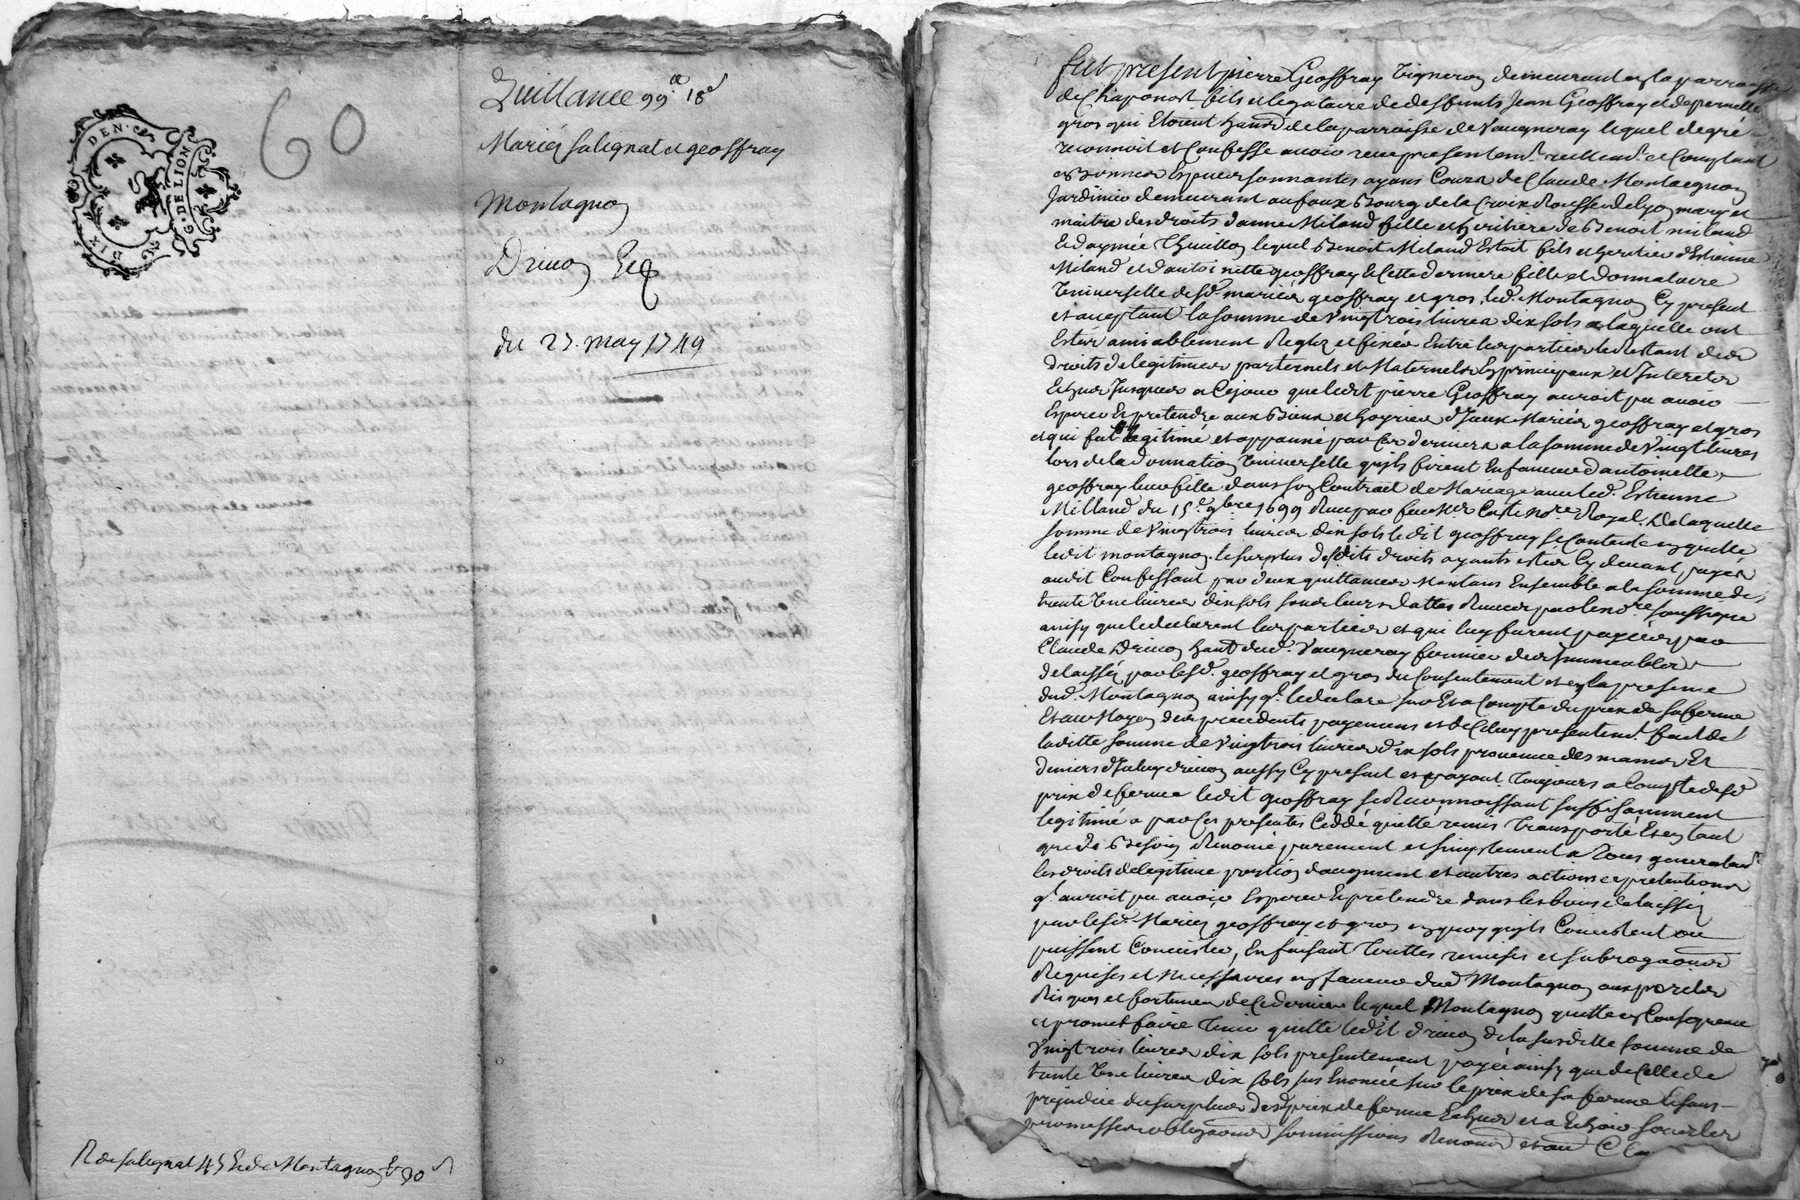 60
DIX DEN.ers
G. DE LION
Quittance 99# 18s
Mariés Salignat et geoffray
Montagnon
Drivon Ecq
du 27. may 1749
R de Salignat 4s Et de Montagnon
fut present pierre Geoffray vigneron demeurant en la parroisse
de Chaponost fils et legataire de deffunts Jean Geoffray et de pernette
gros qui Etoient habns de la parroisse de Vaugneray lequel de gré
reconnoit et Confesse avoir receu presentemt. reellemt. et Comptant
en bonnes Especes sonnantes ayans Cours de Claude Montagnon
Jardinier demeurant au faux Bourg de la Croix Rousse de lyon mary et
maitre des droits d'anne Miland fille et heritiere de Benoit miland
et d'aymée Thuillon lequel Benoit Miland Estoit fils et heritier d'Estienne
Miland et d'antoinette geoffray et Cette derniere fille et donnataire
Universelle desd. mariés geoffray et gros, led. Montagnon Cy present
et acceptant la somme de Vingt trois livres dix sols a laquelle ont
Estés amiablement Reglés et fixés Entre les parties le Restant des
droits de legitimes parternels et Maternels En principaux et Interets
Echus Jusques a Ce jour que ledit pierre Geoffray auroit pu avoir
Esperer et pretendre aux Biens et hoyries d'Iceux Mariés geoffray et gros
et qui fut legitimé et appanné par Ces derniers a la somme de Vingt livres
lors de la donnation Universelle qu'ils firent En faveur d'antoinette
geoffray leur fille dans son Contrait de Mariage avec led. Estienne
Milland du 15e. 9bre 1699 Receu par Notre Royal. De laquelle
somme de Vingt trois livres dix sols ledit geoffray se Contente en quitte
ledit montagnon. le surplus desdits droits ayants estes Cy devant payés
audit Confessant par deux quittances Montans Ensemble a la somme de
trente Une livres dix sols sous leurs dattes Receues par le nore soussigné
ainsy que le declarent les parties et qui luy furent payées par
Claude Drivon habt dud. Vaugneray fermier des Immeubles
delaissés par lesd. geoffray et gros du Consentement et en la presence
dud. Montagnon ainsy ql. le declare sur Et a Compte du prix de sa ferme
Et au Moyen des precedents payemens et de Celuy presentemt. fait de
laditte somme de Vingt trois livres dix sols provenue des mains Et
deniers d'Iceluy drivon aussy Cy present et payant Toujours a Compte desd
prix de ferme ledit Geoffray se Reconnoissant suffisamment
legitimé a par Ces presentes Ceddé quitté remis Transporté Et en tant
que de Besoin Renoncé purement et simplement a Tous generalemt.
les droits de legitime portion d'augment et autres actions et pretentions
ql. auroit pu avoir Esperer Et pretendre dans les biens delaissés
par lesd. Mariés geoffray et gros en quoy qu'ils Consistent ou
puissent Consister, En faisant Touttes remises et subrogaons
Requises et Necessaires en faveur dud Montagnon aux perils
Risques et fortunes de Ce dernier lequel Montagnon quitte en Consequence
et promet faire Tenir quitte ledit drivon de la susditte somme de
Vingt trois livres dix sols presentement payée ainsy que de Celle de
trente Une livres dix sols sus Enoncée sur le prix de sa ferme Et sans
prejudice du surplus desd prix de ferme Echus et a Echoir sous les
promesses obligaons soumissions Renons et au Cla